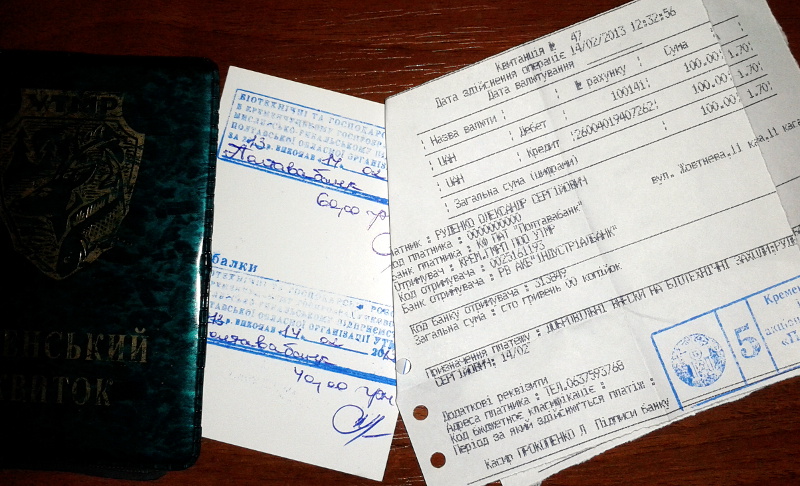 УТМР
СЬКИЙ
КВИТОК
БІОТЕХНІЧНІ ТА ГОСПОДАРС
В КРЕМЕНЧУЦЬКОМУ
ПОЛТАВСЬКОЇ ОБЛАСНОЇ ОРГАНІЗА
"13" 14 02
Полтавабанк
60,00 грн
балки
ПОЛТАВСЬКОЇ ОБЛАСНОЇ ОРГАНІЗАЦІЇ УТМР
14 02
Полтавабанк
40,00 грн
Квитанція № 47
Дата здійснення операціє 14/02/2013 12:32:56
Дата валютування
Назва валюти Дебет № рахунку Сума
UAH 100141 100.00 1.70
UAH Кредит 26004019407262 100.00 1.70
Загальна сума (цифрами) 100.00 1.70
атник : РУДЕНКО ОЛЕКСАНДР СЕРГІЙОВИЧ
од платника : 0000000000
Банк платника : КФ ПАТ "Полтавабанк" вул. Жовтнева,11
Отримувач : КРЕМ.ГМРП ПОО УТМР
Код отримувача : 0025161193
Банк отримувача : РВ АКБ"ІНДУСТРІАЛБАНК"
Код банку отримувача : 313849
Загальна сума : сто гривень 00 копійок
Призначення платежу : ДОБРОВІЛЬНІ ВНЕСКИ НА БІОТЕХНІЧНІ ЗАХОДИ;РУДЕ
СЕРГІЙОВИЧ: 14/02
Додаткові реквізити
Адреса платника : ТЕЛ.0637593768
Код бюджетноє класифікаціє :
Період за який здійснюється платіж :
Касир ПРОКОПЕНКО Л Підписи банку
5
Кремен